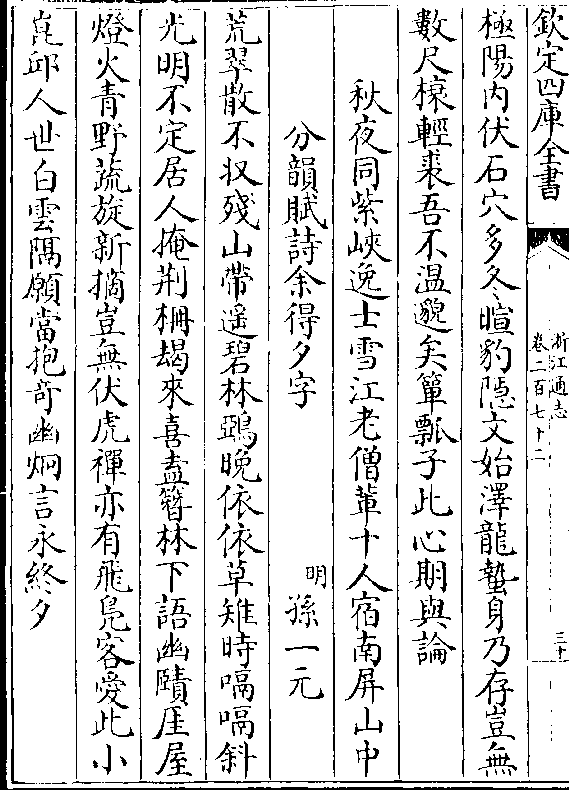 欽定四庫全書
浙江通志
卷二百七十二
三十
極陽内伏石穴多冬暄豹隱文始澤龍蟄身乃存豈無
數尺榱輕裘吾不温邈矣簞瓢子此心期與論
秋夜同紫峽逸士雪江老僧輩十人宿南屏山中
分韻賦詩余得夕字
明孫一元
荒翠散不收殘山帶遥碧林鵶晩依依草雉時嗝嗝斜
光明不定居人掩荆栅朅來喜盍簪林下語幽賾厓屋
燈火青野蔬旋新摘豈無伏虎禪亦有飛鳬客愛此小
崑邱人世白雲隔願當抱奇幽炯言永終夕